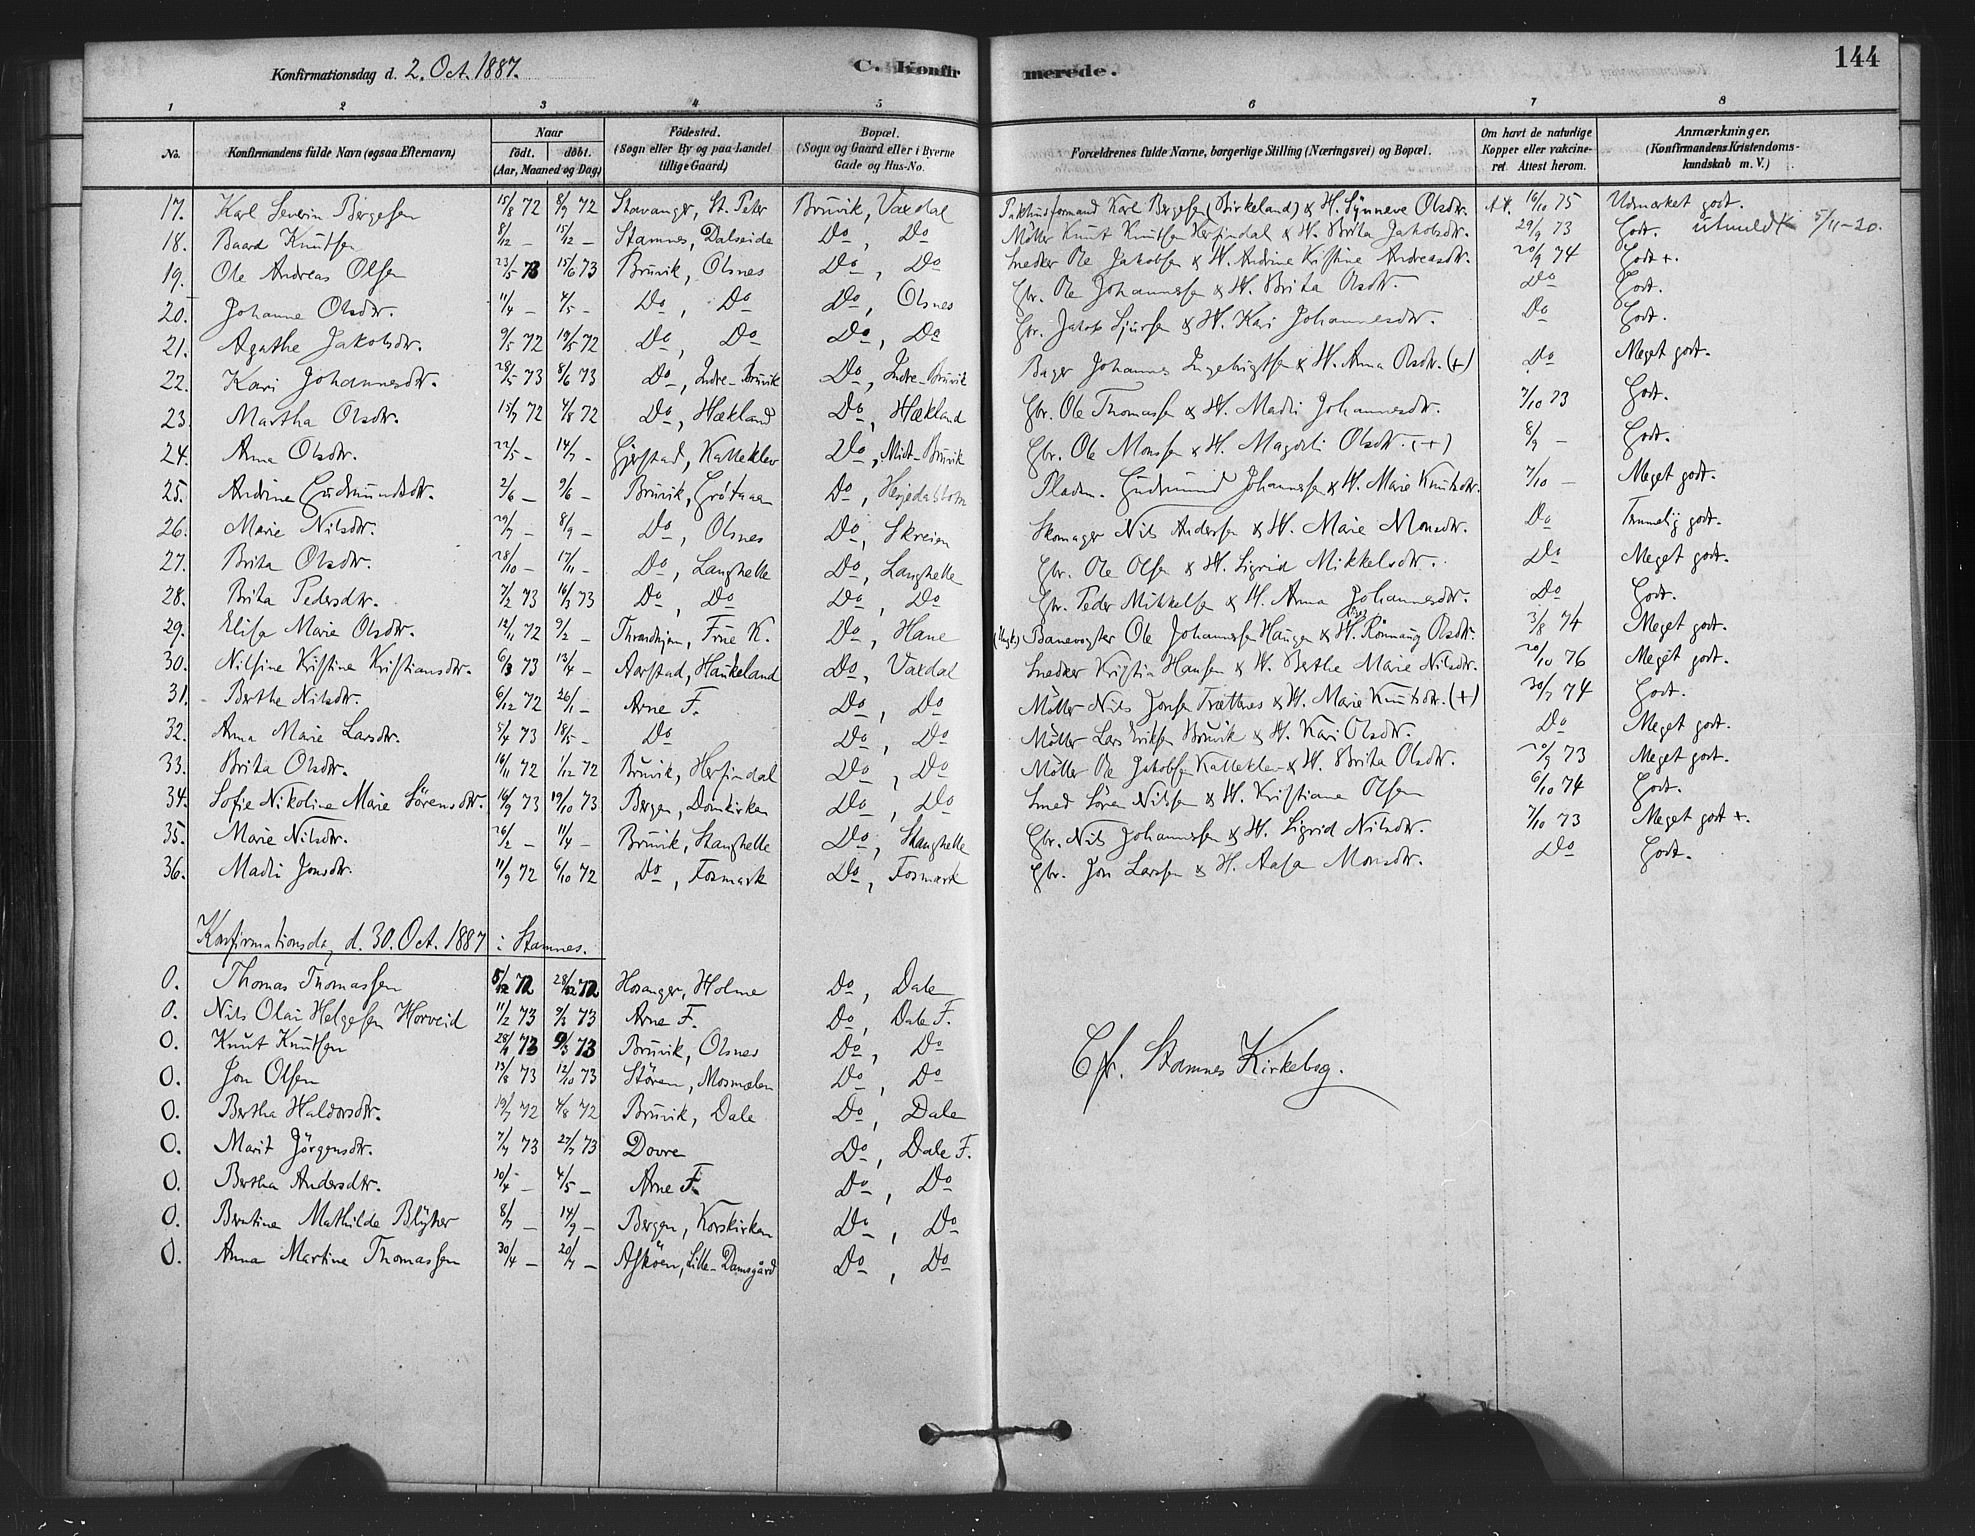 Konfirmationsdag d. 2. Oct. 1887.
C. Konfirmerede.
144
1 2 3 4 5 6 7 8
No. Konfirmandens fulde Navn (ogsaa Efternavn) Naar født. døbt. (Aar, Maaned og Dag) Fødested. (Sogn eller By og paa Landet tillige Gaard) Bopæl. (Sogn og Gaard eller i Byerne Gade og Hus-No. Forældrenes fulde Navne, borgerlige Stilling (Næringsvei) og Bopæl. Om havt de naturlige Kopper eller vakcineret. Attest herom. Anmærkninger. (Konfirmandens Kristendomskundskab m. V.)
17. Karl Severin Bergesen 15/8 72 8/9 72 Stavanger, St. Peter Bruvik, Vaxdal Pakhusformand Karl Bergesen (Birkeland) & H. Synneve Olsdtr. 16/10 75 Udmærket godt.
18. Baard Knutsen 8/12 – 15/12 – Stamnes, Dalseide Do, Do Møller Knut Knutsen Herfindal & H. Brita Jakobsdtr. 29/9 73 Godt. utmeldt 5/11-20.
19. Ole Andreas Olsen 23/5 73 15/6 73 Bruvik, Olsnes Do, Do Snedker Ole Jakobsen & H. Andrine Kristine Andreasdtr. 20/9 74 Godt +.
20. Johanne Olsdtr. 11/4 – 4/5 – Do, Do Do, Olsnes Gbr. Ole Johannessen & H. Brita Olsdtr. Do Godt.
21. Agathe Jakobsdtr. 9/5 72 19/5 72 Do, Do Do, Do Gbr. Jakob Sjursen & H. Kari Johannesdtr. Do Godt.
22. Kari Johannesdtr. 28/5 73 8/6 73 Do, Indre-Bruvik Do, Indre-Bruvik Bager Johannes Ingebrigtsen & H. Anna Olsdtr. (+) Do Meget godt.
23. Martha Olsdtr. 15/7 72 4/8 72 Do, Hækland Do, Hækland Gbr. Ole Thomassen & H. Madli Johannesdtr. 7/10 73 Godt.
24. Anna Olsdtr. 22/5 – 14/7 – Gjerstad, Kalleklev Do, Midt-Bruvik Gbr. Ole Monsen & H. Magdli Olsdtr. (+) 8/9 – Godt.
25. Andrine Gudmundsdtr. 2/6 – 9/6 – Bruvik, Grøtaaen Do, Pladsm. Gudmund Johannessen & H. Marie Knutsdtr. 7/10 – Meget godt.
26. Marie Nilsdtr. 29/7 – 8/9 – Do, Olsnes Do, Skreien Skomager Nils Andersen & H. Marie Monsdtr. Do Temmelig godt.
27. Brita Olsdtr. 28/10 – 17/11 – Do, Langhelle Do, Langhelle Gbr. Ole Olsen & H. Sigrid Mikkelsdtr. Do Meget godt.
28. Brita Pedersdtr. 7/2 73 16/3 73 Do, Do Do, Do Gbr. Peder Mikkelsen & H. Anna Johannesdtr. Do Godt.
29. Elisa Marie Olsdtr. 12/11 72 9/2 – Throndhjem, Frue K. Do, Hane Banevogter Ole Johannessen Haugen & H. Rønnaug Olsdtr. 3/8 74 Meget godt.
30. Nilsine Kristine Kristiansdtr. 6/3 73 13/4 – Aarstad, Haukeland Do, Vaxdal Snedker Kristian Hansen & H. Berthe Marie Nilsdtr. 20/10 76 Meget godt.
31. Berthe Nilsdtr. 6/12 72 26/1 – Arne F. Do, Do Møller Nils Jonsen Trættenes & H. Marie Knutsdtr. (+) 30/7 74 Godt.
32. Anna Marie Larsdtr. 5/4 73 18/5 – Do Do, Do Møller Lars Eriksen Bruvik & H. Kari Olsdtr. Do Meget godt.
33. Brita Olsdtr. 16/11 72 1/12 72 Bruvik, Herfindal Do, Do Møller Ole Jakobsen Kalleklev & H. Brita Olsdtr. 20/9 73 Meget godt.
34. Sofie Nikoline Marie Sørensdtr. 16/9 73 19/10 73 Bergen, Domkirken Do, Do Smed Søren Nilsen & H. Kristiane Olsen 6/10 74 Godt.
35. Marie Nilsdtr. 26/2 – 11/4 – Bruvik, Stanghelle Do, Stanghelle Gbr. Nils Johannessen & H. Sigrid Nilsdtr. 7/10 73 Meget godt +.
36. Madli Jonsdtr. 11/9 72 6/10 72 Do, Fosmark Do, Fosmark Gbr. Jon Larssen & H. Aasa Monsdtr. Do Godt.
Konfirmationsdag d. 30. Oct. 1887 i Stamnes.
0. Thomas Thomassen 72 72 Hosanger, Holme Do, Dale
0. Nils Olai Helgesen Horveid 11/2 73 9/3 73 Arne F. Do, Dale F.
0. Knut Knutsen 73 9/3 73 Bruvik, Olsnes Do, Do
0. Jon Olsen 13/8 73 12/10 73 Støren, Mosmælen Do, Do
Cfr. Stamnes Kirkebog.
0. Bertha Haldorsdtr. 19/7 72 4/8 72 Bruvik, Dale Do, Dale
0. Marit Jörgensdtr. 7/7 73 27/7 73 Dovre Do, Dale F.
0. Bertha Andersdtr. 30/4 – 4/5 – Arne F. Do, Do
0. Berntine Mathilde Blytser 8/7 – 14/9 – Bergen, Korskirken Do, Do
0. Anna Martine Thomassen 30/4 – 20/7 – Askøen, Lille-Damsgård Do, Do